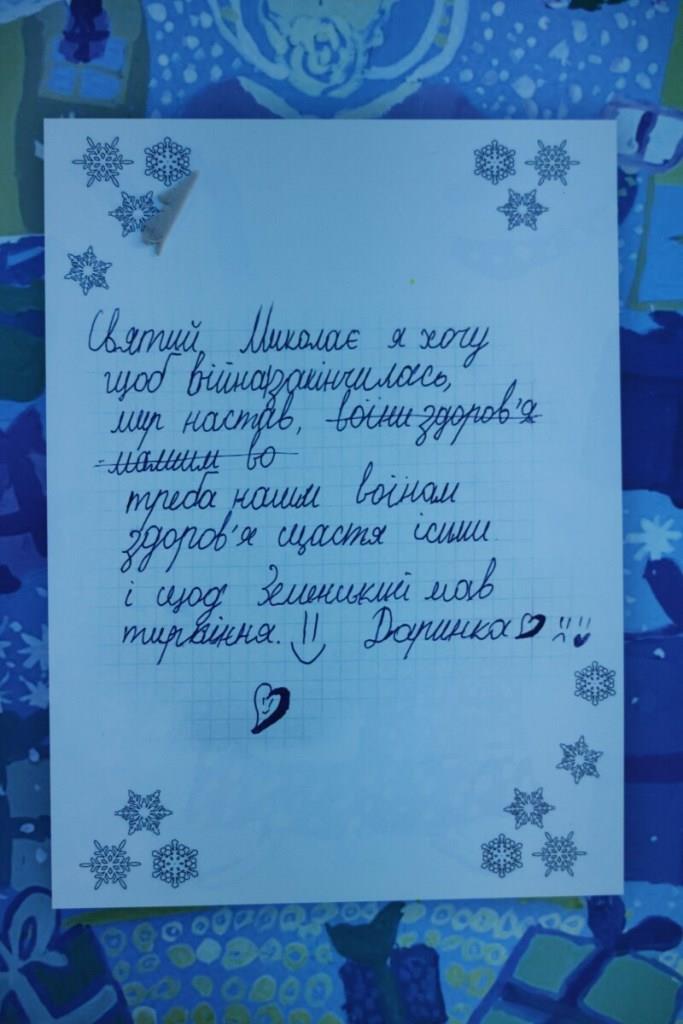 Святий Миколає я хочу
щоб війна закінчилась,
мир настав, воїни здоров'я
нашим во
треба нашим воїнам
здоров'я щастя і сили
і щоб Зеленський мав
терпіння. Даринка